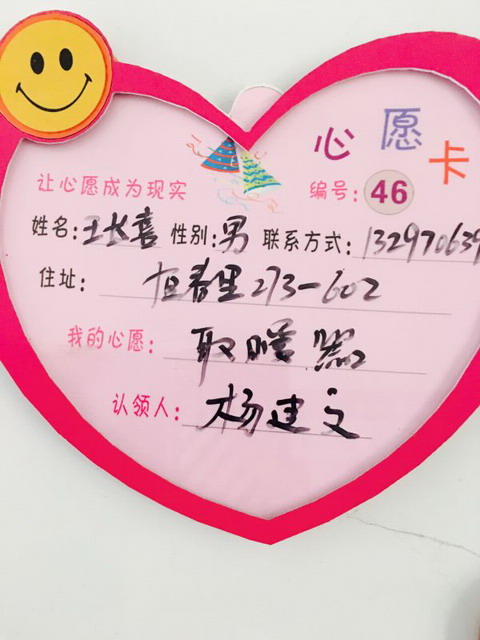 心愿卡
让心愿成为现实 编号: 46
姓名:王长喜 性别:男 联系方式:132970639
住址: 恒春里273-602
我的心愿: 取暖器
认领人: 杨建文